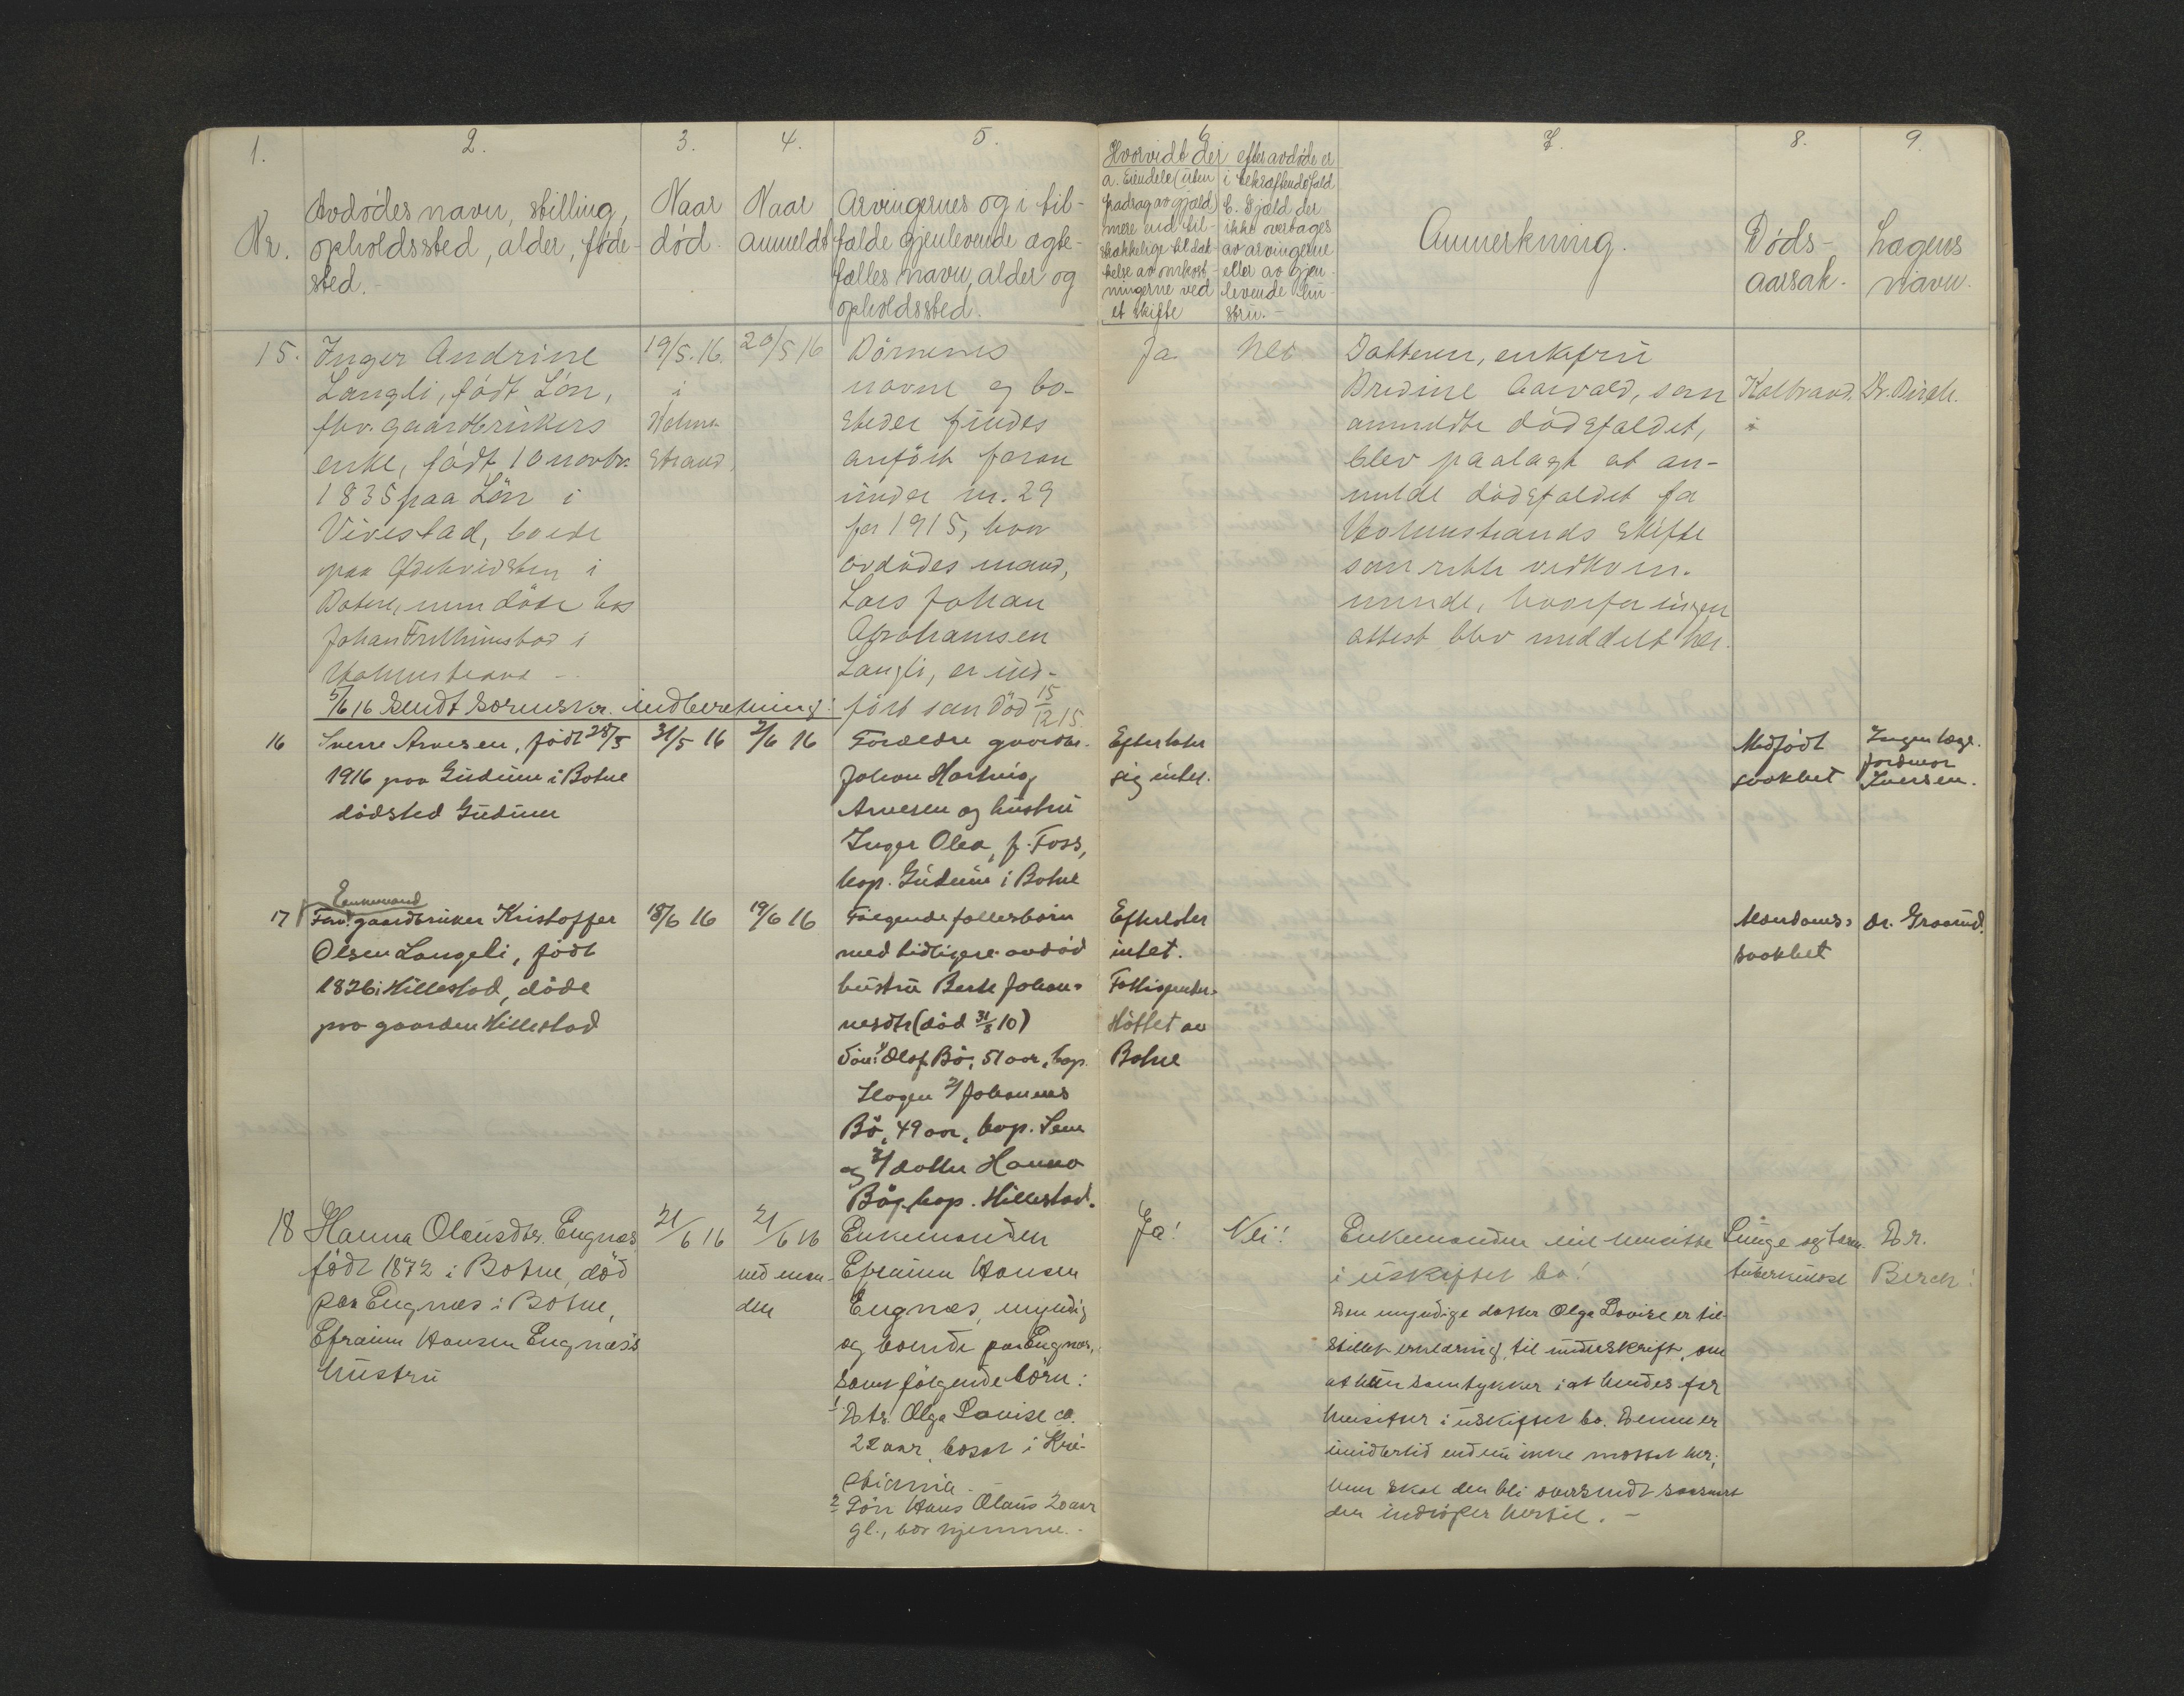 1.
2.
3.
4.
5.
6
7.
8.
9.
Nr.
Avdødes navn, stilling,
opholdssted, alder, føde-
sted.
Naar
død.
Naar
anmeldt
Arvingernes og i til-
fælde gjenlevende ægte-
fælles navn, alder og
opholdssted.
Hvorvidt der efter avdøde er
a. Eiendele (uten
fradrag av gjæld)
mere end til-
strækkelige til dæk-
kelse av omkost-
ningerne ved
et skifte
i bekræftende fald
b. Gjæld der
ikke overtages
av arvingerne
eller av gjen-
levende hu-
stru.
Anmerkning.
Døds-
aarsak.
Lægens
navn.
15.
Inger Andrine
Langli, født Lön,
fhv. gaardbrukers
enke, født 10 novbr.
1835 paa Lön i
Vivestad, boede
paa
i
Botne, men döde hos
Johan
i
Holmestrand
5/6 16 sendt sorenskr. indberetning:
19/5. 16.
i
Holme-
strand
20/5 16
Börnenes
navne og bo-
steder findes
anfört foran
under nr. 29
for 1915, hvor
avdödes mand,
Lars Johan
Abrahamsen
Langli, er ind-
fört som död 15/12 15.
Ja.
Nei
Datteren, enkefru
Bredine Aarvold, som
anmeldte dödsfaldet,
blev paalagt at an-
melde dödsfaldet for
Holmestrands skifte
som rette vedkom-
mende, hvorfor ingen
attest blev meddelt her.
Koldbrand.
Dr. Birch.
16
Sverre Arvesen, født 28/5
1916 paa Gudum i Botne
dödsted Gudum
31/5 16
2/6 16
Foreldre gaardbr.
Johan Hartvig
Arvesen og hustru
Inger Olea, f. Foss,
bop. Gudum i Botne
Efterlater
sig intet.
Medfödt
svakhet
Ingen læge.
Jordmor
Iversen.
17
Enkemand
Forv. gaardbruker Kristoffer
Olsen Langeli, födt
1826 i Hillestad, döde
paa gaarden Hillestad
18/6 16
19/6 16
Følgende fællesbørn
med tidligere avdöd
hustru Berte Johan-
nesdtr (död 31/8 10)
Sön: 1/ Olaf Bö, 51 aar, bop.
Hagen 2/ Johannes
Bö, 49 aar, bop. Sem
og 3/ datter Hanna
Bö, bop. Hillestad.
Efterlater
intet.
Fattigunder-
støttet av
Botne
Alderdoms-
svakhet
Dr. Graarud.
18
Hanna Olausdtr. Engnæs
født 1872 i Botne, død
paa Engnæs i Botne,
Efraim Hansen Engnæs's
hustru
21/6 16
21/6 16
ved man-
den
Enkemanden
Efraim Hansen
Engnæs, myndig
og boende paa Engnæs,
samt følgende børn:
1 Dtr. Olga Lovise ca.
22 aar, bosat i Kri-
stiania.
2 Sön Hans Olaus 20 aar
gl., bor hjemme.
Ja!
Nei!
Enkemanden vil hensitte
i uskiftet bo!
Den myndige datter Olga Lovise er til-
stillet erklæring til underskrift, om
at hun samtykker i at hendes far
hensitter i uskiftet bo. Denne er
imidlertid endnu ikke mottat her,
men skal den bli oversendt saasnart
den indløper hertil.
Lunge og tarm-
tuberkulose
Dr.
Birch!